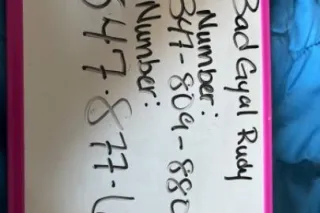 Bad Gyal Rudy
Number:
347-809-880
Number:
547.877.